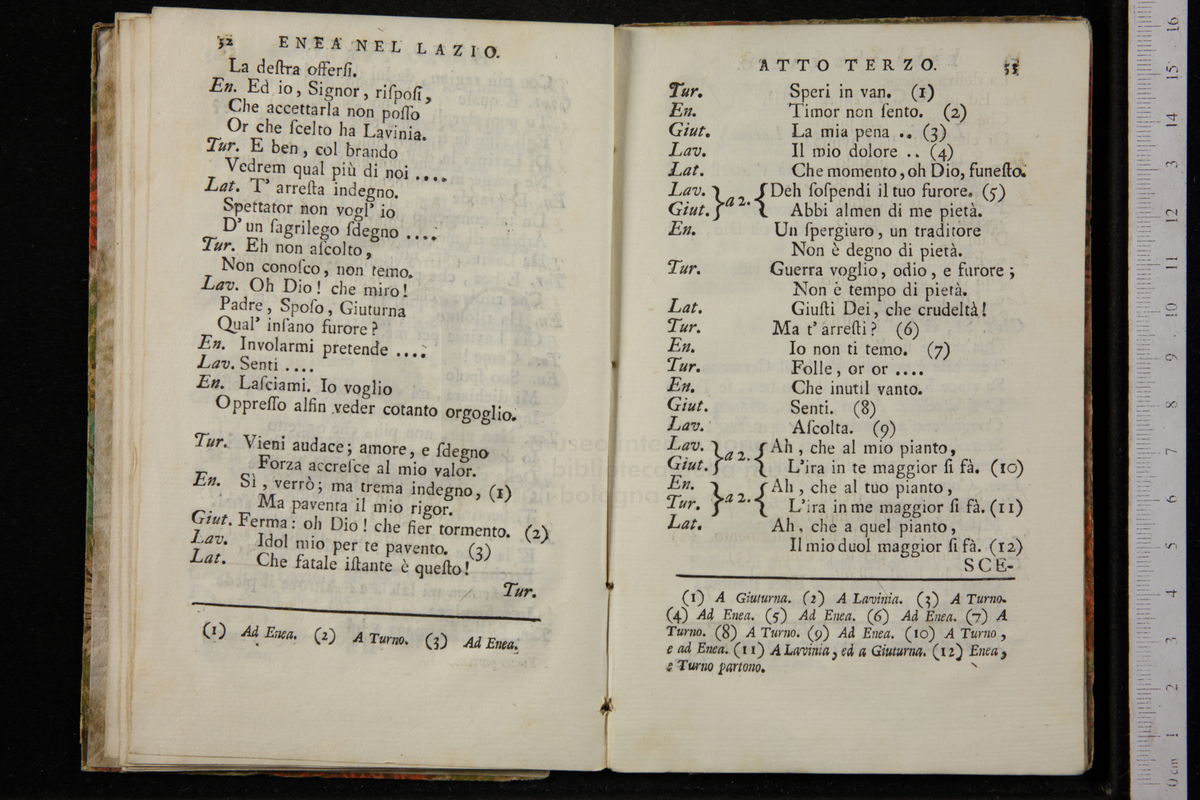 52 ENEA NEL LAZIO.
La deſtra offerſi.
En. Ed io, Signor, riſpoſi,
Che accettarla non poſſo
Or che ſcelto ha Lavinia.
Tur. E ben, col brando
Vedrem qual più di noi ....
Lat. T' arreſta indegno.
Spettator non vogl' io
D' un ſagrilego ſdegno ....
Tur. Eh non aſcolto,
Non conoſco, non temo.
Lav. Oh Dio! che miro!
Padre, Spoſo, Giuturna
Qual' inſano furore?
En. Involarmi pretende ....
Lav. Senti ....
En. Laſciami. Io voglio
Oppreſſo alfin veder cotanto orgoglio.
Tur. Vieni audace; amore, e ſdegno
Forza accreſce al mio valor.
En. Sì, verrò; ma trema indegno, (1)
Ma paventa il mio rigor.
Giut. Ferma: oh Dio! che fier tormento. (2)
Lav. Idol mio per te pavento. (3)
Lat. Che fatale iſtante è queſto!
Tur.
(1) Ad Enea. (2) A Turno. (3) Ad Enea.
ATTO TERZO. 53
Tur. Speri in van. (1)
En. Timor non ſento. (2)
Giut. La mia pena .. (3)
Lav. Il mio dolore .. (4)
Lat. Che momento, oh Dio, funeſto.
Lav. } a 2. { Deh ſoſpendi il tuo furore. (5)
Giut. } { Abbi almen di me pietà.
En. Un ſpergiuro, un traditore
Non è degno di pietà.
Tur. Guerra voglio, odio, e furore;
Non è tempo di pietà.
Lat. Giuſti Dei, che crudeltà!
Tur. Ma t' arreſti? (6)
En. Io non ti temo. (7)
Tur. Folle, or or ....
En. Che inutil vanto.
Giut. Senti. (8)
Lav. Aſcolta. (9)
Lav. } a 2. { Ah, che al mio pianto,
Giut. } { L'ira in te maggior ſi fà. (10)
En. } a 2. { Ah, che al tuo pianto,
Tur. } { L'ira in me maggior ſi fà. (11)
Lat. Ah, che a quel pianto,
Il mio duol maggior ſi fà. (12)
SCE-
(1) A Giuturna. (2) A Lavinia. (3) A Turno.
(4) Ad Enea. (5) Ad Enea. (6) Ad Enea. (7) A
Turno. (8) A Turno. (9) Ad Enea. (10) A Turno,
e ad Enea. (11) A Lavinia, ed a Giuturna. (12) Enea,
e Turno partono.
0 cm 1 2 3 4 5 6 7 8 9 10 11 12 13 14 15 16